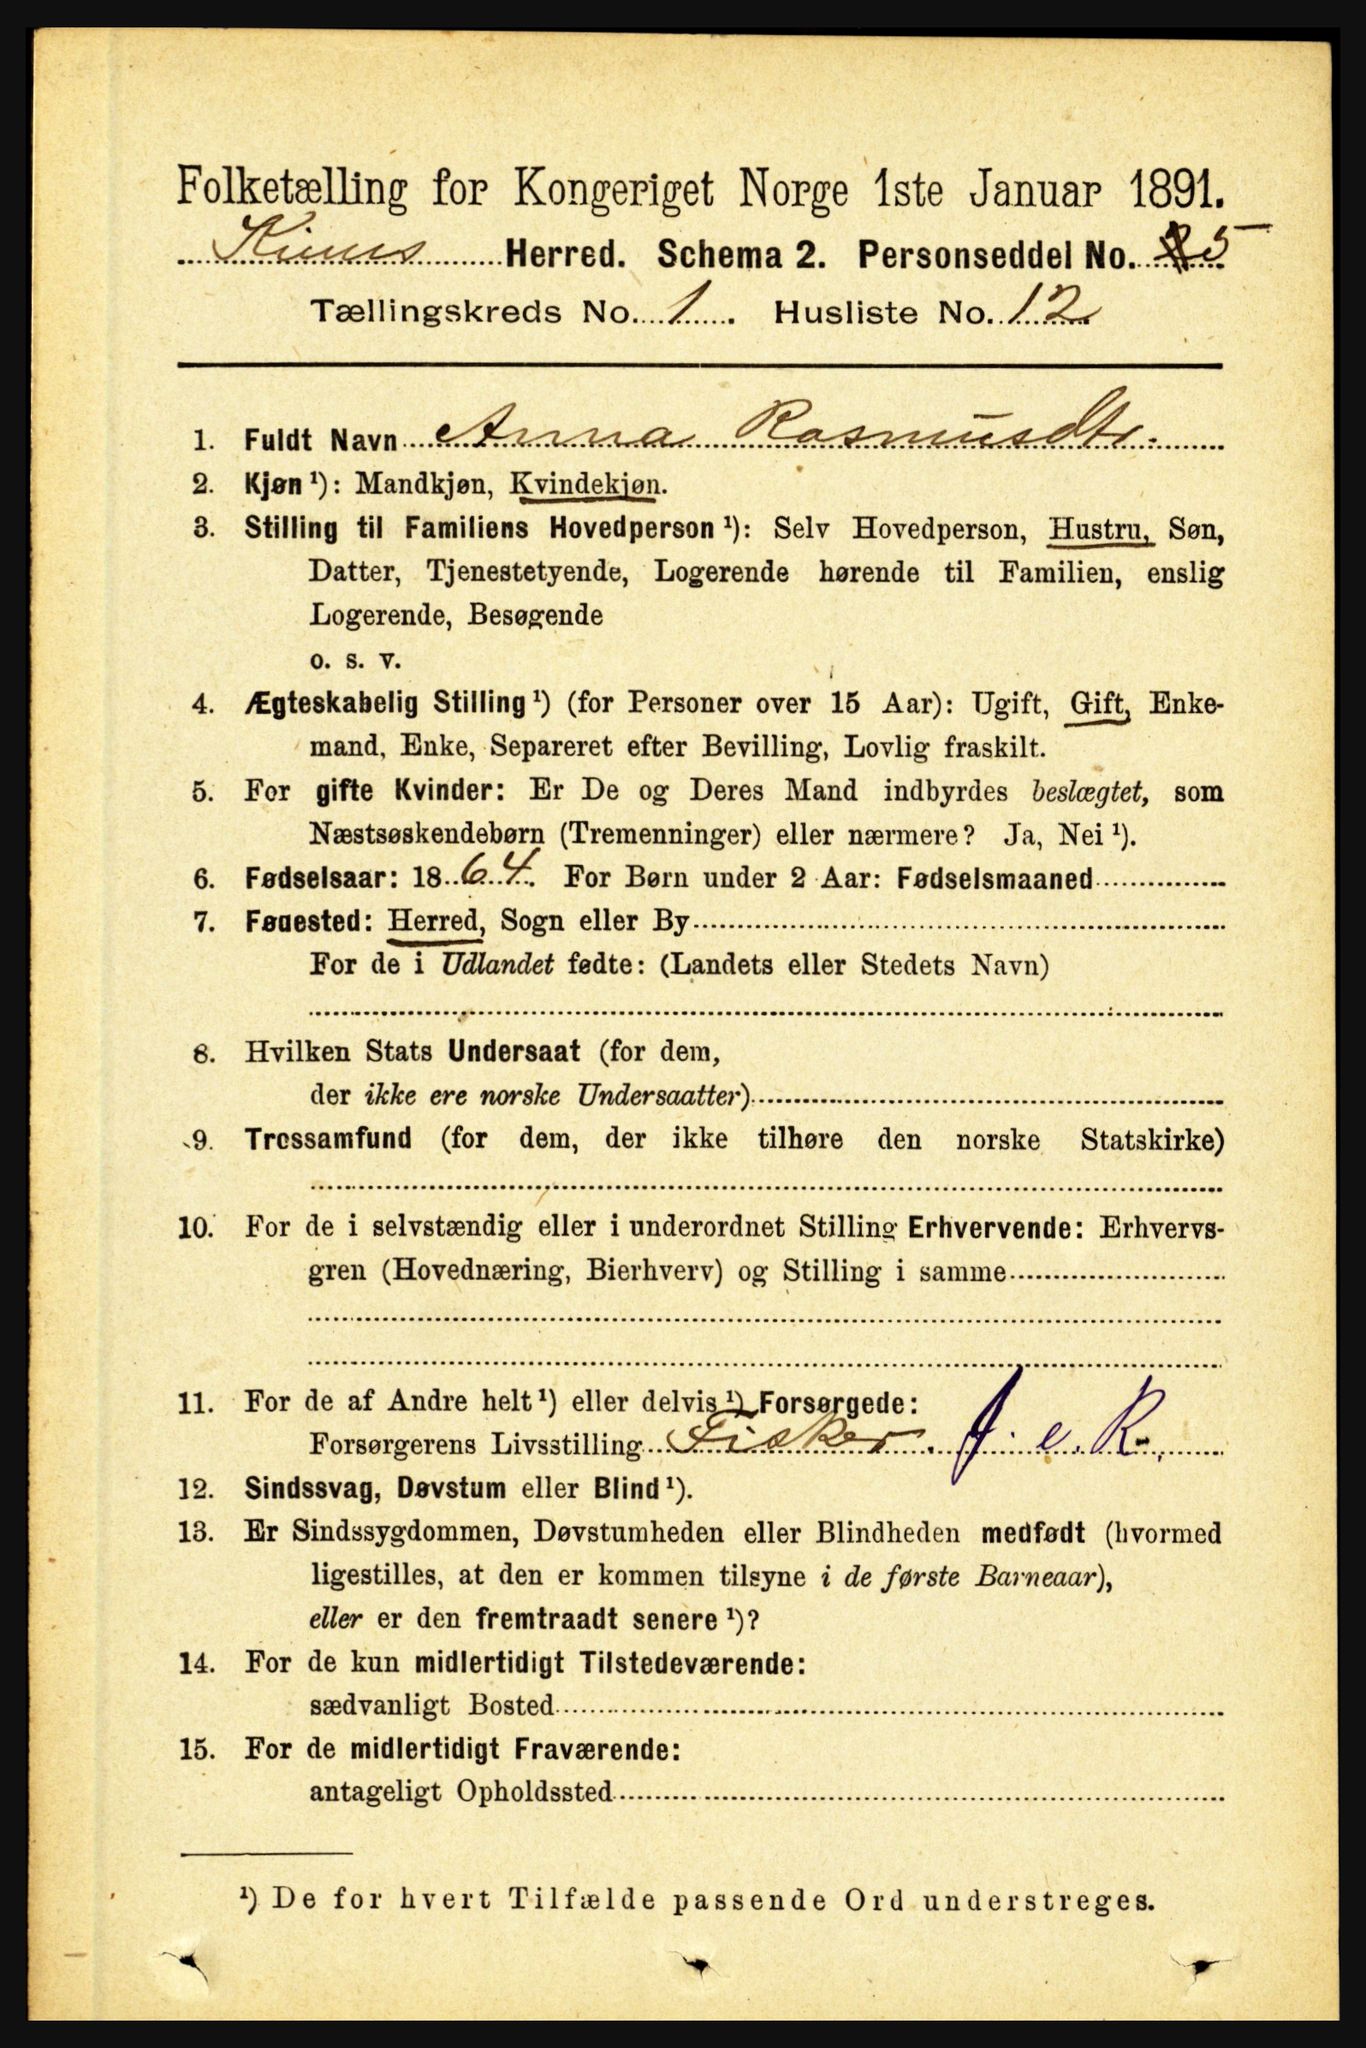 Folketælling for Kongeriget Norge 1ste Januar 1891.
Kinns Herred. Schema 2. Personseddel No. 5
Tællingskreds No. 1. Husliste No. 12
1. Fuldt Navn Anna Rasmusdtr.
2. Kjøn ¹): Mandkjøn, Kvindekjøn.
3. Stilling til Familiens Hovedperson ¹): Selv Hovedperson, Hustru, Søn,
Datter, Tjenestetyende, Logerende hørende til Familien, enslig
Logerende, Besøgende
o. s. v.
4. Ægteskabelig Stilling ¹) (for Personer over 15 Aar): Ugift, Gift, Enke-
mand, Enke, Separeret efter Bevilling, Lovlig fraskilt.
5. For gifte Kvinder: Er De og Deres Mand indbyrdes beslægtet, som
Næstsøskendebørn (Tremenninger) eller nærmere? Ja, Nei ¹).
6. Fødselsaar: 1864. For Børn under 2 Aar: Fødselsmaaned
7. Fødested: Herred, Sogn eller By
For de i Udlandet fødte: (Landets eller Stedets Navn)
8. Hvilken Stats Undersaat (for dem,
der ikke ere norske Undersaatter)
9. Trossamfund (for dem, der ikke tilhøre den norske Statskirke)
10. For de i selvstændig eller i underordnet Stilling Erhvervende: Erhvervs-
gren (Hovednæring, Bierhverv) og Stilling i samme
11. For de af Andre helt ¹) eller delvis ¹) Forsørgede:
Forsørgerens Livsstilling Fisker. J. e. R.
12. Sindssvag, Døvstum eller Blind ¹).
13. Er Sindssygdommen, Døvstumheden eller Blindheden medfødt (hvormed
ligestilles, at den er kommen tilsyne i de første Barneaar),
eller er den fremtraadt senere ¹)?
14. For de kun midlertidigt Tilstedeværende:
sædvanligt Bosted
15. For de midlertidigt Fraværende:
antageligt Opholdssted
¹) De for hvert Tilfælde passende Ord understreges.